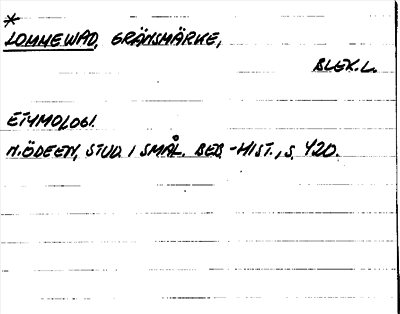 *
LOMMEWAD, GRÄNSMÄRKE,
BLEK.L.
ETYMOLOGI.
N. ÖDEEN, STUD. I SMÅL. BEB.-HIST., S. 420.